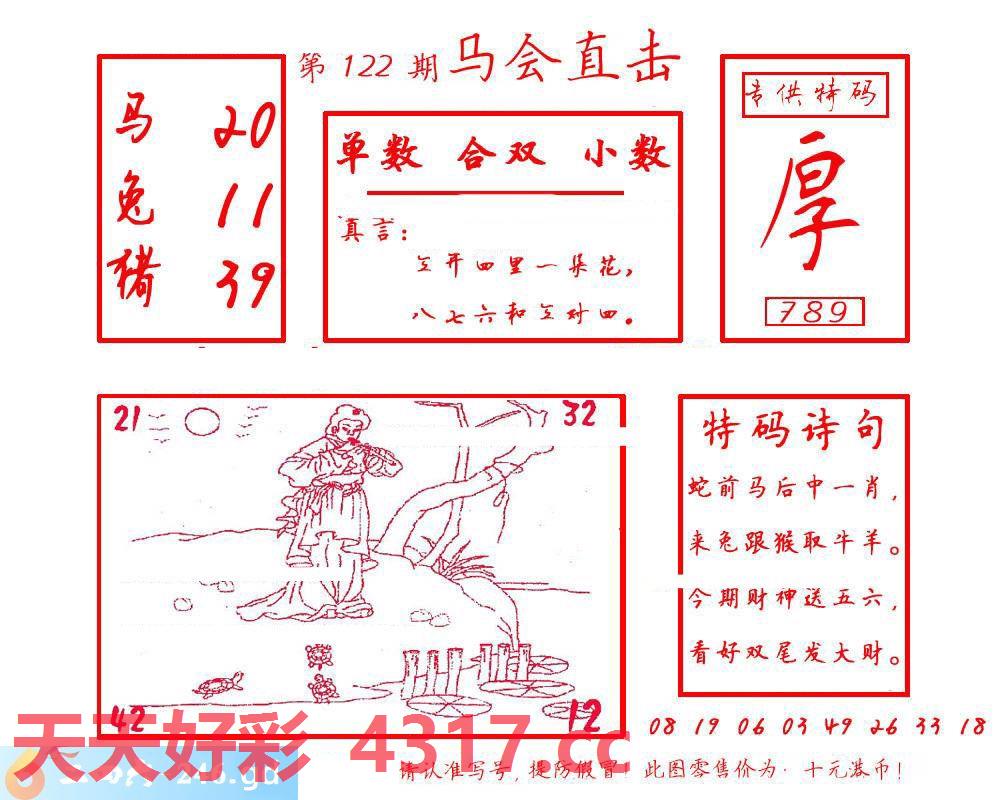 第 122 期 马会直击
马 20
兔 11
猪 39
单数 合双 小数
真言:
三开四里一朵花,
八七六和三对四。
专供特码
厚
789
21
32
42
12
特码诗句
蛇前马后中一肖,
来兔跟猴取牛羊。
今期财神送五六,
看好双尾发大财。
08 19 06 03 49 26 33 18
天天好彩 4317.cc
246.gd
请认准写号,提防假冒!此图零售价为·十元港币!